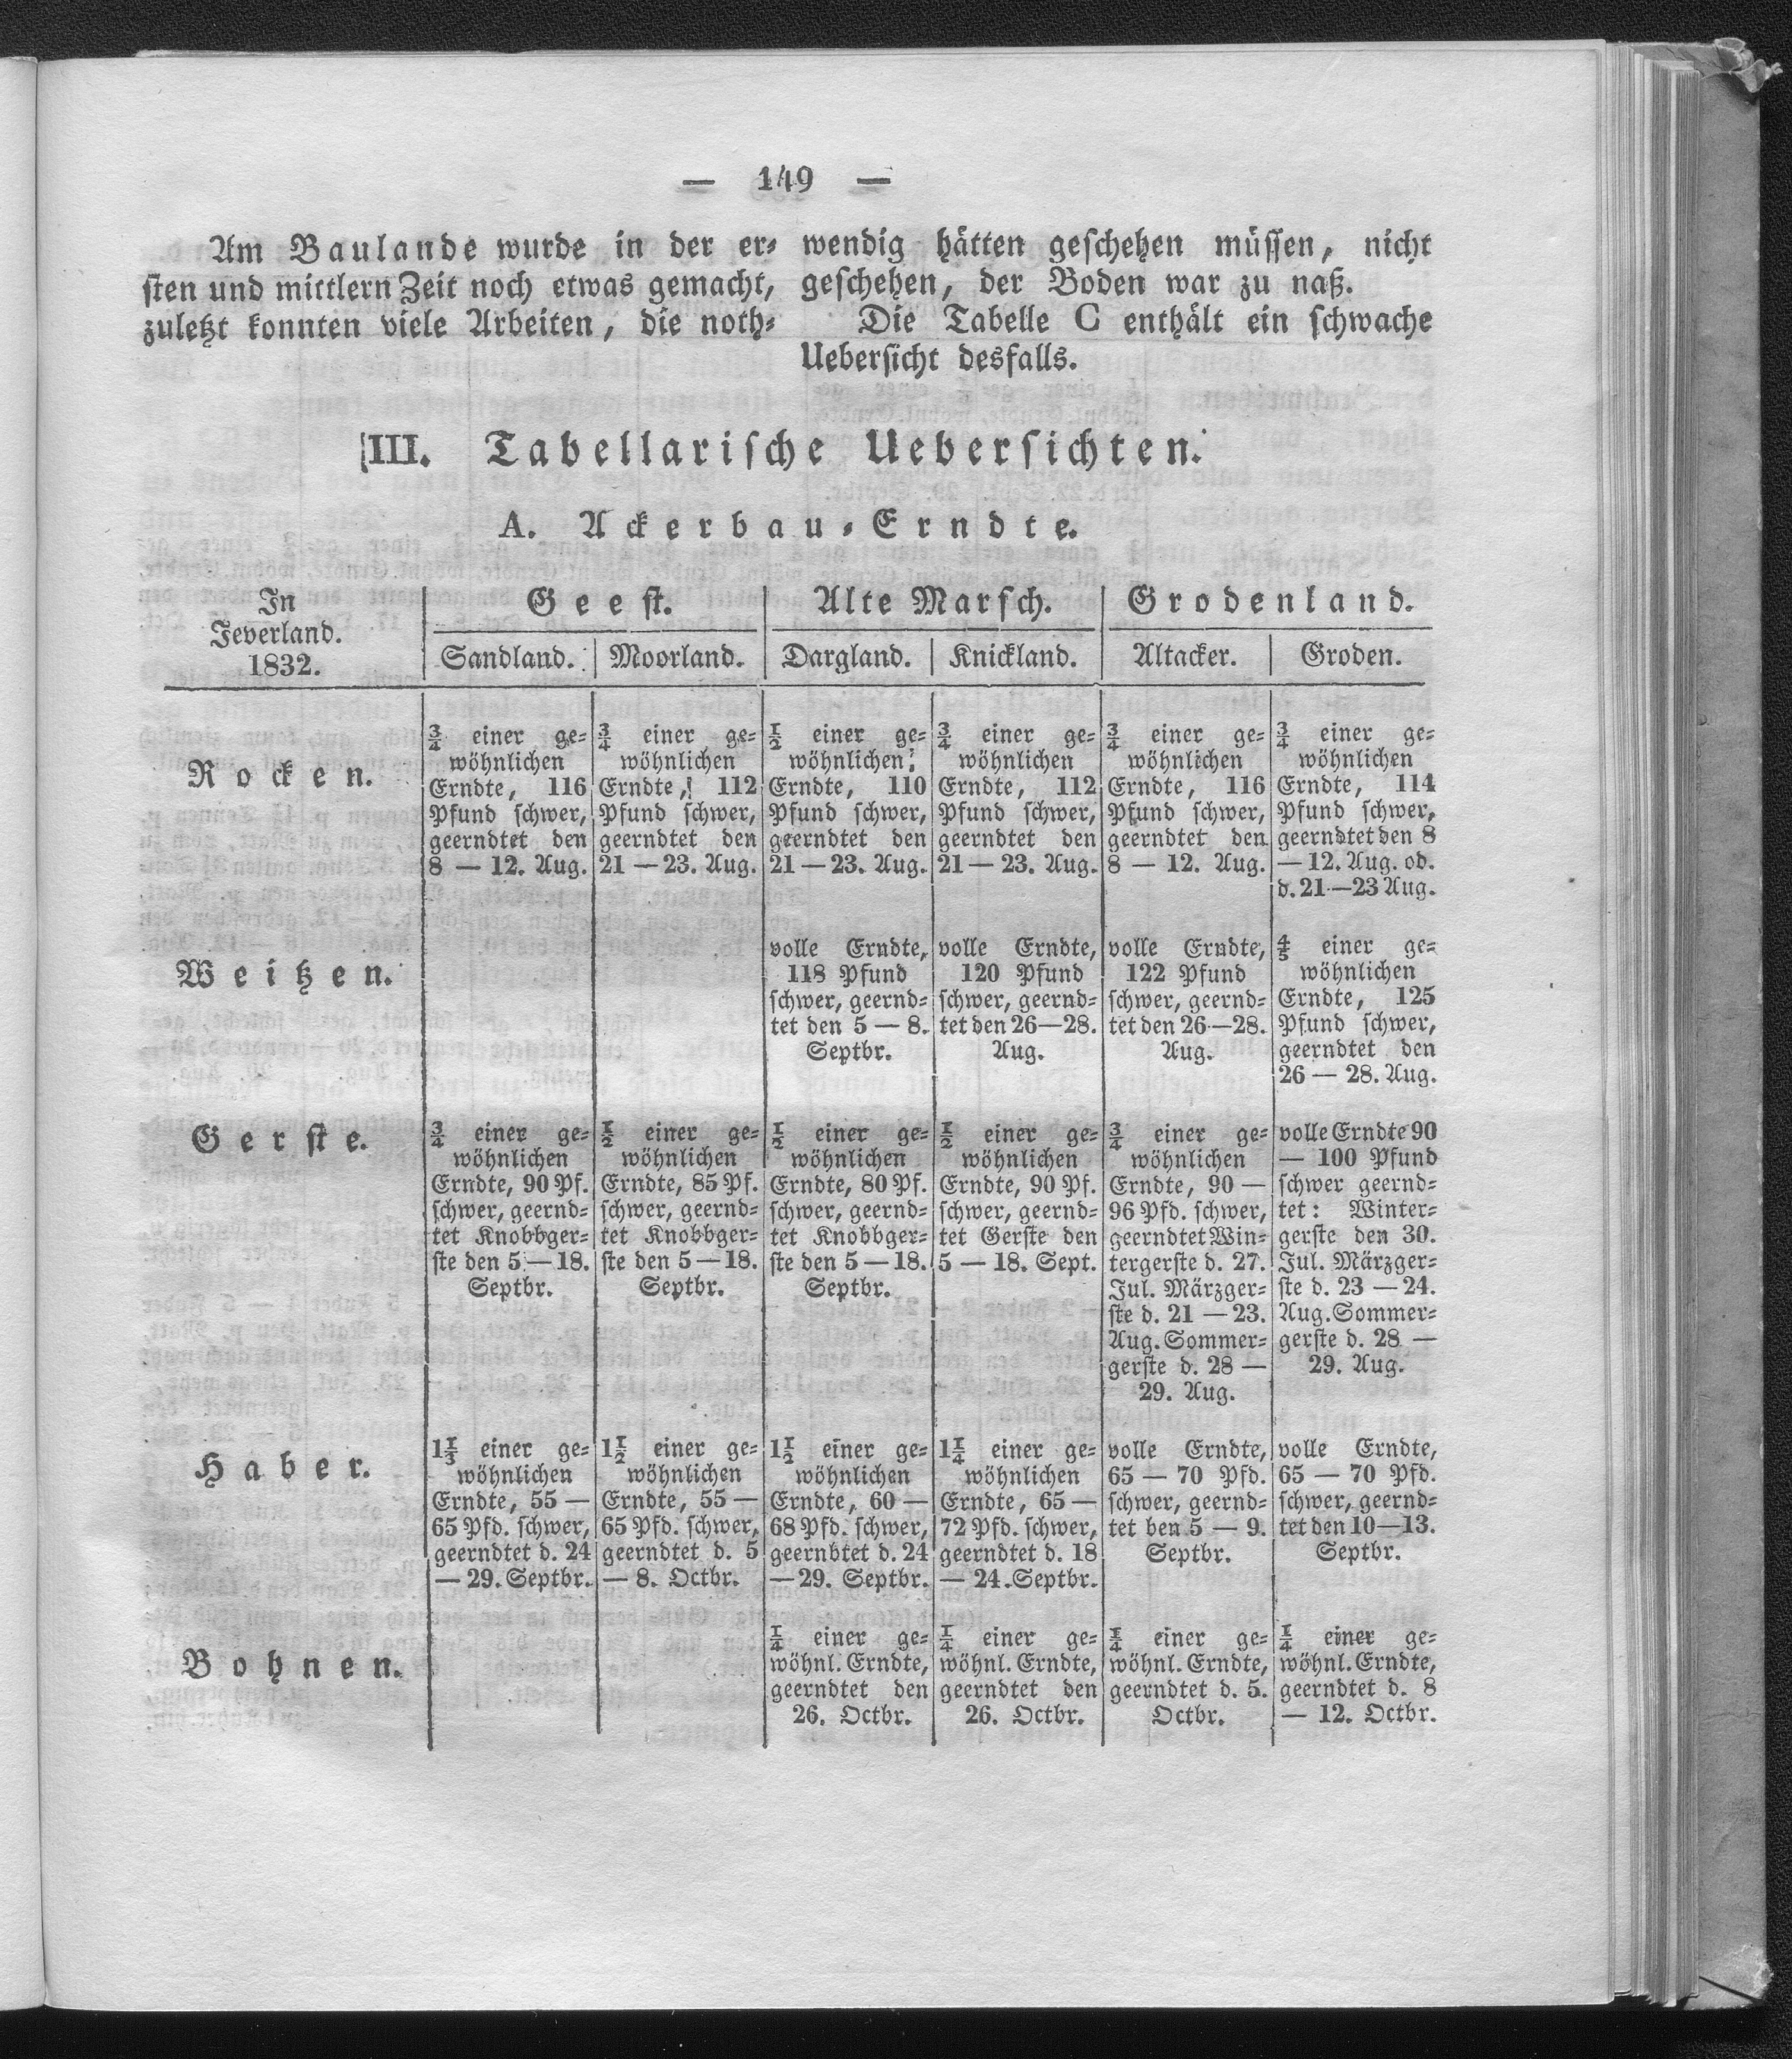 — 149 —
Am Baulande wurde in der er-
sten und mittlern Zeit noch etwas gemacht,
zuletzt konnten viele Arbeiten, die noth-
wendig hätten geschehen müssen, nicht
geschehen, der Boden war zu naß.
Die Tabelle C enthält ein schwache
Uebersicht desfalls.
III. Tabellarische Uebersichten.
A. Ackerbau-Erndte.
In
Jeverland.
1832.
Geest.
Alte Marsch.
Grodenland.
Sandland.
Moorland.
Dargland.
Knickland.
Altacker.
Groden.
Rocken.
¾ einer ge-
wöhnlichen
Erndte, 116
Pfund schwer,
geerndtet den
8 — 12. Aug.
¾ einer ge-
wöhnlichen
Erndte, 112
Pfund schwer,
geerndtet den
21 — 23. Aug.
½ einer ge-
wöhnlichen
Erndte, 110
Pfund schwer,
geerndtet den
21 — 23. Aug.
¾ einer ge-
wöhnlichen
Erndte, 112
Pfund schwer,
geerndtet den
21 — 23. Aug.
¾ einer ge-
wöhnlichen
Erndte, 116
Pfund schwer,
geerndtet den
8 — 12. Aug.
¾ einer ge-
wöhnlichen
Erndte, 114
Pfund schwer,
geerndtet den 8
— 12. Aug. od.
d. 21 — 23 Aug.
Weitzen.
volle Erndte,
118 Pfund
schwer, geernd-
tet den 5 — 8.
Septbr.
volle Erndte,
120 Pfund
schwer, geernd-
tet den 26—28.
Aug.
volle Erndte,
122 Pfund
schwer, geernd-
tet den 26—28.
Aug.
⅘ einer ge-
wöhnlichen
Erndte, 125
Pfund schwer,
geerndtet den
26 — 28. Aug.
Gerste.
¾ einer ge-
wöhnlichen
Erndte, 90 Pf.
schwer, geernd-
tet Knobbger-
ste den 5 — 18.
Septbr.
½ einer ge-
wöhnlichen
Erndte, 85 Pf.
schwer, geernd-
tet Knobbger-
ste den 5 — 18.
Septbr.
½ einer ge-
wöhnlichen
Erndte, 80 Pf.
schwer, geernd-
tet Knobbger-
ste den 5 — 18.
Septbr.
½ einer ge-
wöhnlichen
Erndte, 90 Pf.
schwer, geernd-
tet Gerste den
5 — 18. Sept.
¾ einer ge-
wöhnlichen
Erndte, 90 —
96 Pfd. schwer,
geerndtet Win-
tergerste d. 27.
Jul. Märzger-
ste d. 21 — 23.
Aug. Sommer-
gerste d. 28 —
29. Aug.
volle Erndte 90
— 100 Pfund
schwer geernd-
tet: Winter-
gerste den 30.
Jul. Märzger-
ste d. 23 — 24.
Aug. Sommer-
gerste d. 28 —
29. Aug.
Haber.
1⅓ einer ge-
wöhnlichen
Erndte, 55 —
65 Pfd. schwer,
geerndtet d. 24
— 29. Septbr.
1½ einer ge-
wöhnlichen
Erndte, 55 —
65 Pfd. schwer,
geerndtet d. 5
— 8. Octbr.
1½ einer ge-
wöhnlichen
Erndte, 60 —
68 Pfd. schwer,
geernbtet d. 24
— 29. Septbr.
1¼ einer ge-
wöhnlichen
Erndte, 65 —
72 Pfd. schwer,
geerndtet d. 18
— 24. Septbr.
volle Erndte,
65 — 70 Pfd.
schwer, geernd-
tet ben 5 — 9.
Septbr.
volle Erndte,
65 — 70 Pfd.
schwer, geernd-
tet den 10—13.
Septbr.
Bohnen.
¼ einer ge-
wöhnl. Erndte,
geerndtet den
26. Octbr.
¼ einer ge-
wöhnl. Erndte,
geerndtet den
26. Octbr.
¼ einer ge-
wöhnl. Erndte,
geerndtet d. 5.
Octbr.
¼ einer ge-
wöhnl. Erndte,
geerndtet d. 8
— 12. Octbr.